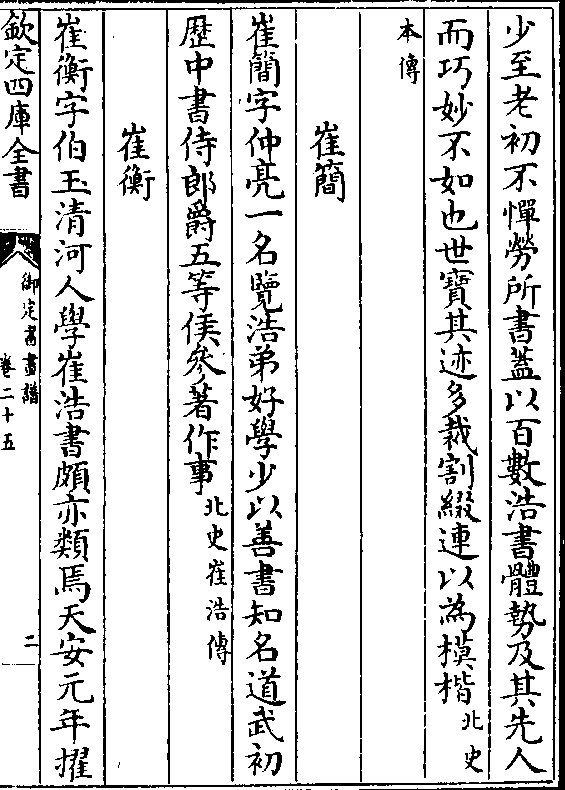 少至老初不憚勞所書蓋以百數浩書體勢及其先人
而巧妙不如也世寶其迹多裁割綴連以為模楷北史
本傳
崔簡
崔簡字仲亮一名覽浩弟好學少以善書知名道武初
歴中書侍郎爵五等侯參著作事北史崔浩傳
崔衡
崔衡字伯玉清河人學崔浩書頗亦類焉天安元年擢
欽定四庫全書
御定書畫譜
卷二十五
二